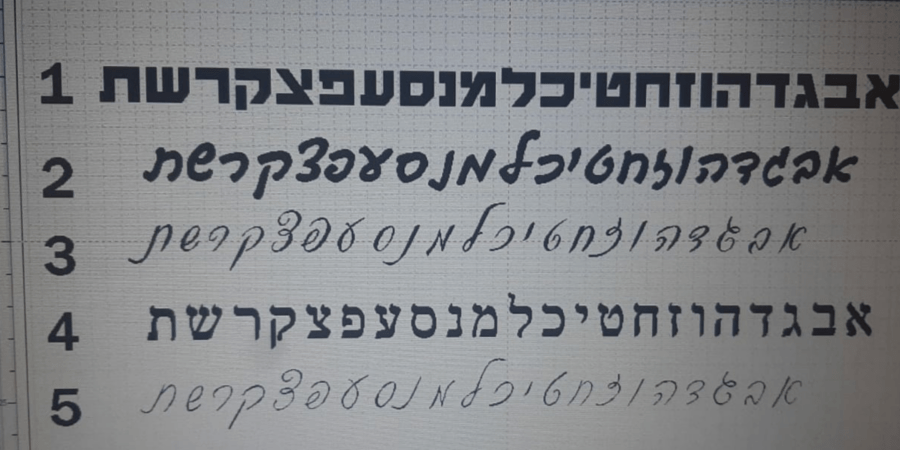 1 אבגדהוזחטיכלמנסעפצקרשת
2 אבגדהוזחטיכלמנסעפצקרשת
3 אבגדהוזחטיכלמנסעפצקרשת
4 אבגדהוזחטיכלמנסעפצקרשת
5 אבגדהוזחטיכלמנסעפצקרשת